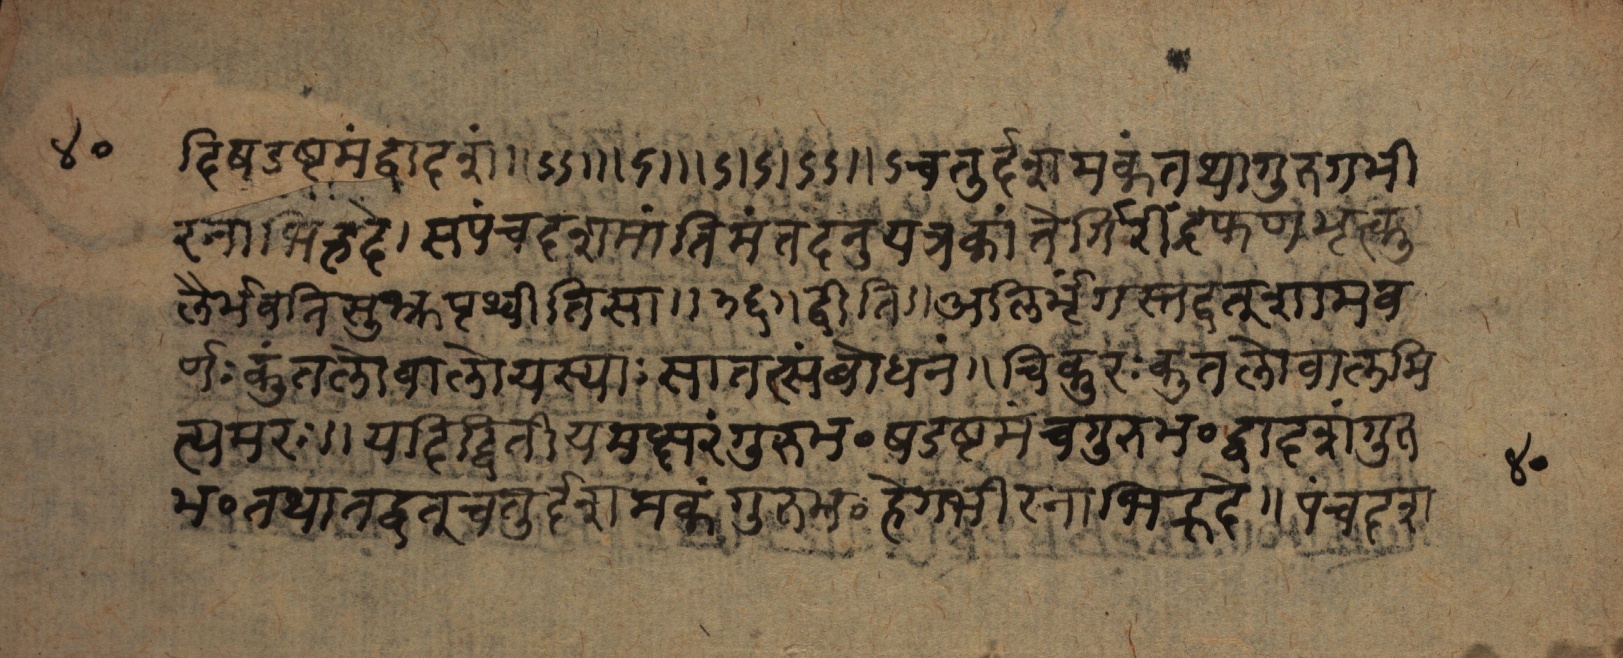 ४०
दि षडष्टमं द्वादशं ॥ ऽऽ।।।ऽ।।।ऽ।ऽ।ऽऽ।।ऽ चतुर्दशमकं तथा गुरु गभी
रनाभिह्रदे । सपंचदशमांतिमं तदनु यत्र कांते गिरींद्रफणभृत्कु
लैर्भवति सुभ्रु पृथ्वीति सा ॥ ३६ ॥ द्वीति ॥ अलिर्भृंगस्तद्वत् श्यामव
र्णः कुंतलो वालो यस्याः सा तत्संबोधनं ॥ चिकुरः कुतलो वालमि
त्यमरः ॥ यदि द्वितीयमक्षरं गुरु भ॰ षडष्टमं च गुरु भ॰ द्वादशं गुरु
भ॰ तथा तद्वत् चतुर्दशमकं गुरु भ॰ हे गभीरनाभिह्रदे ॥ पंचदश
४०